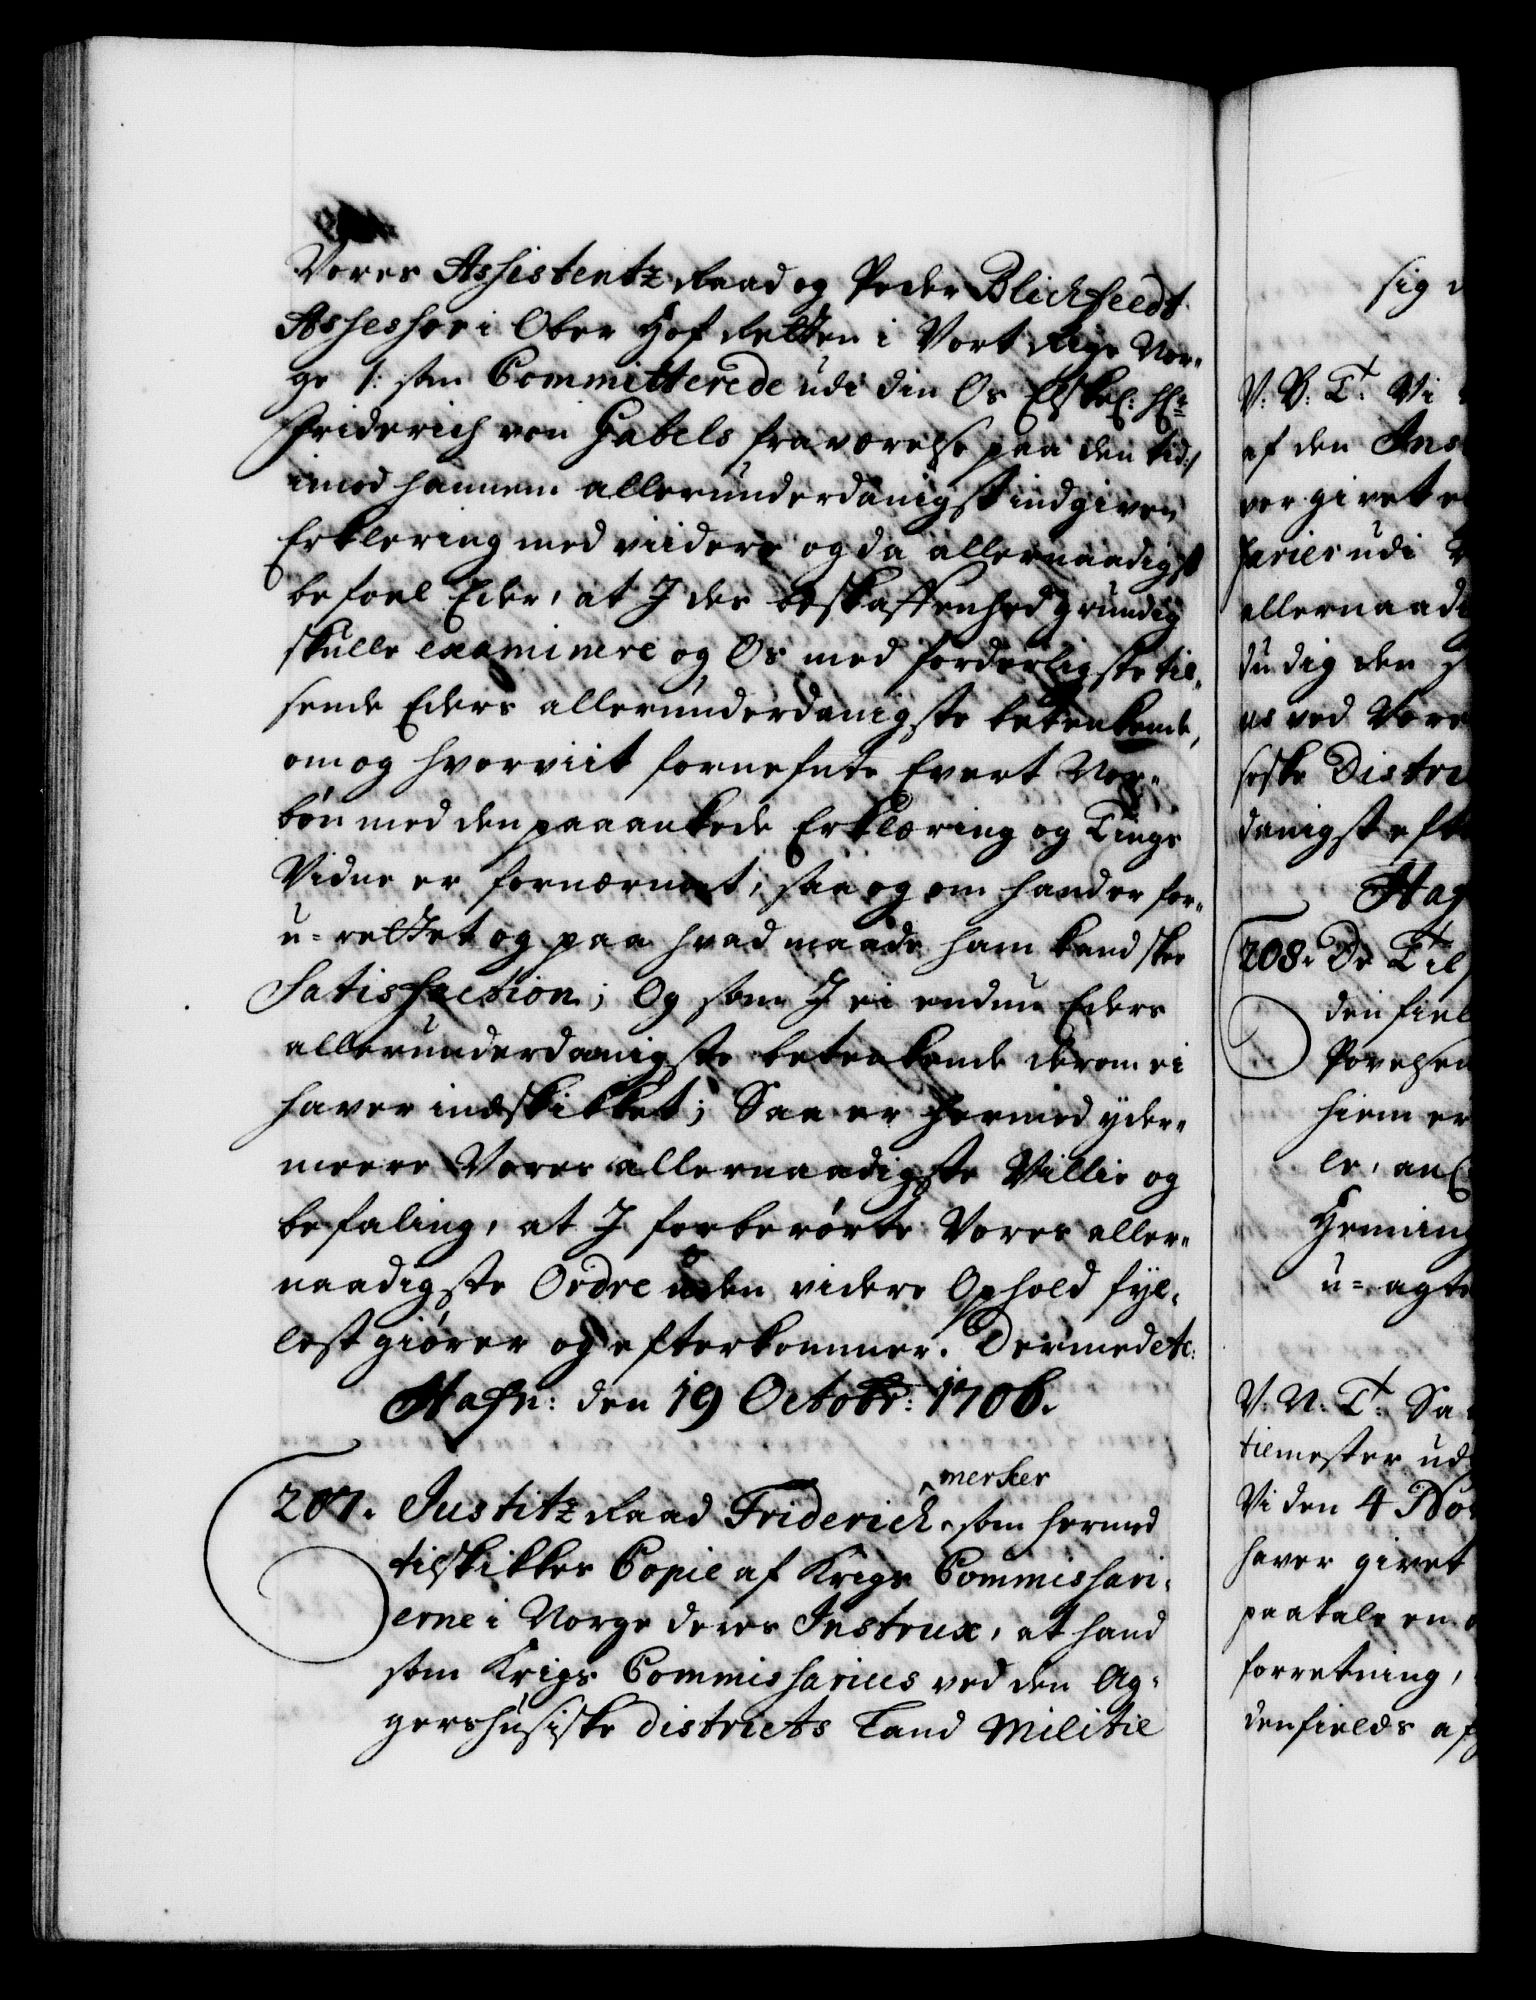 Vores Assistentz Raad og Peder Blichfeedt
Assessor i Ober Hof Retten i Vort Rige Nor-
ge /: som Committerede udi din Os Elskel: Hr:
Friderich von Gabels fraværelse paa den tid :/
imod hannem allerunderdanigst indgiven
Erklering med viidere og da allernaadigst
befoel Eder, at I des beskaffenhed grundig
skulle examinere og Os med forderligste til-
sende Eders allerunderdanigste betenkende,
om og hvorviit fornefnte Evert Nor-
bön med den paaankede Erklæring og Tings
Vidne er fornærmet, saa og om hand er for-
u-rettet og paa hvad maade ham kand skee
Satisfaction; Og som I ei endnu Eders
allerunderdanigste betenkende derom ei
haver indskikket; Saa er hermed yder-
meere Vores allernaadigste Villie og
befaling, at I forberørte Vores aller-
naadigste Ordre uden videre Ophold fyl-
lest giører og efterkommer. Dermed etc:
Hafn: den 19 Octobr: 1706.
merker
207. Justitz Raad Friderich som hermed
tilskikkes Copie af Krigs Commissari-
erne i Norge deres Instrux, at hand
som Krigs Commissarius ved den Ag-
gershusiske districts Land Militie
sig
V: G: T: Vi
af den Ins
ver givet
sarier udi
allernaad
du dig den
es ved Vore
siske Distri
danigst eft
Haf
208. De Til
den fiel
Povelsen
hiem er
le, an
Heming
u-agt
V: N: T: Sa
tilmester ud
Vi den 4 Nov
haver givet
paatale en
forretning,
denfields af